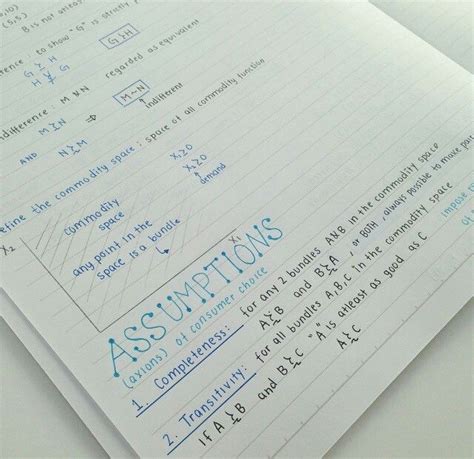 ,10)
(5,5)
B is not atleas
ence : to show "G" is strictly p
G ≿ H
H ⋡ G
G ≻ H
ndifference : M ∀ N regarded as equivalent
M ≿ N
AND N ≿ M
⇒ M ~ N
Indifferent
efine the commodity space : space of all commodity function
X₁ ≥ 0
X₂ ≥ 0
demand
X₂
commodity
space
any point in the
space is a bundle
X₁
ASSUMPTIONS
(axions) of consumer choice
1. Completeness: for any 2 bundles A&B in the commodity space
A ≿ B and B ≿ A , or BOTH , always possible to make pai
2. Transitivity: for all bundles A,B,C in the commodity space
If A ≿ B and B ≿ C "A" is atleast as good as C
A ≿ C
impose